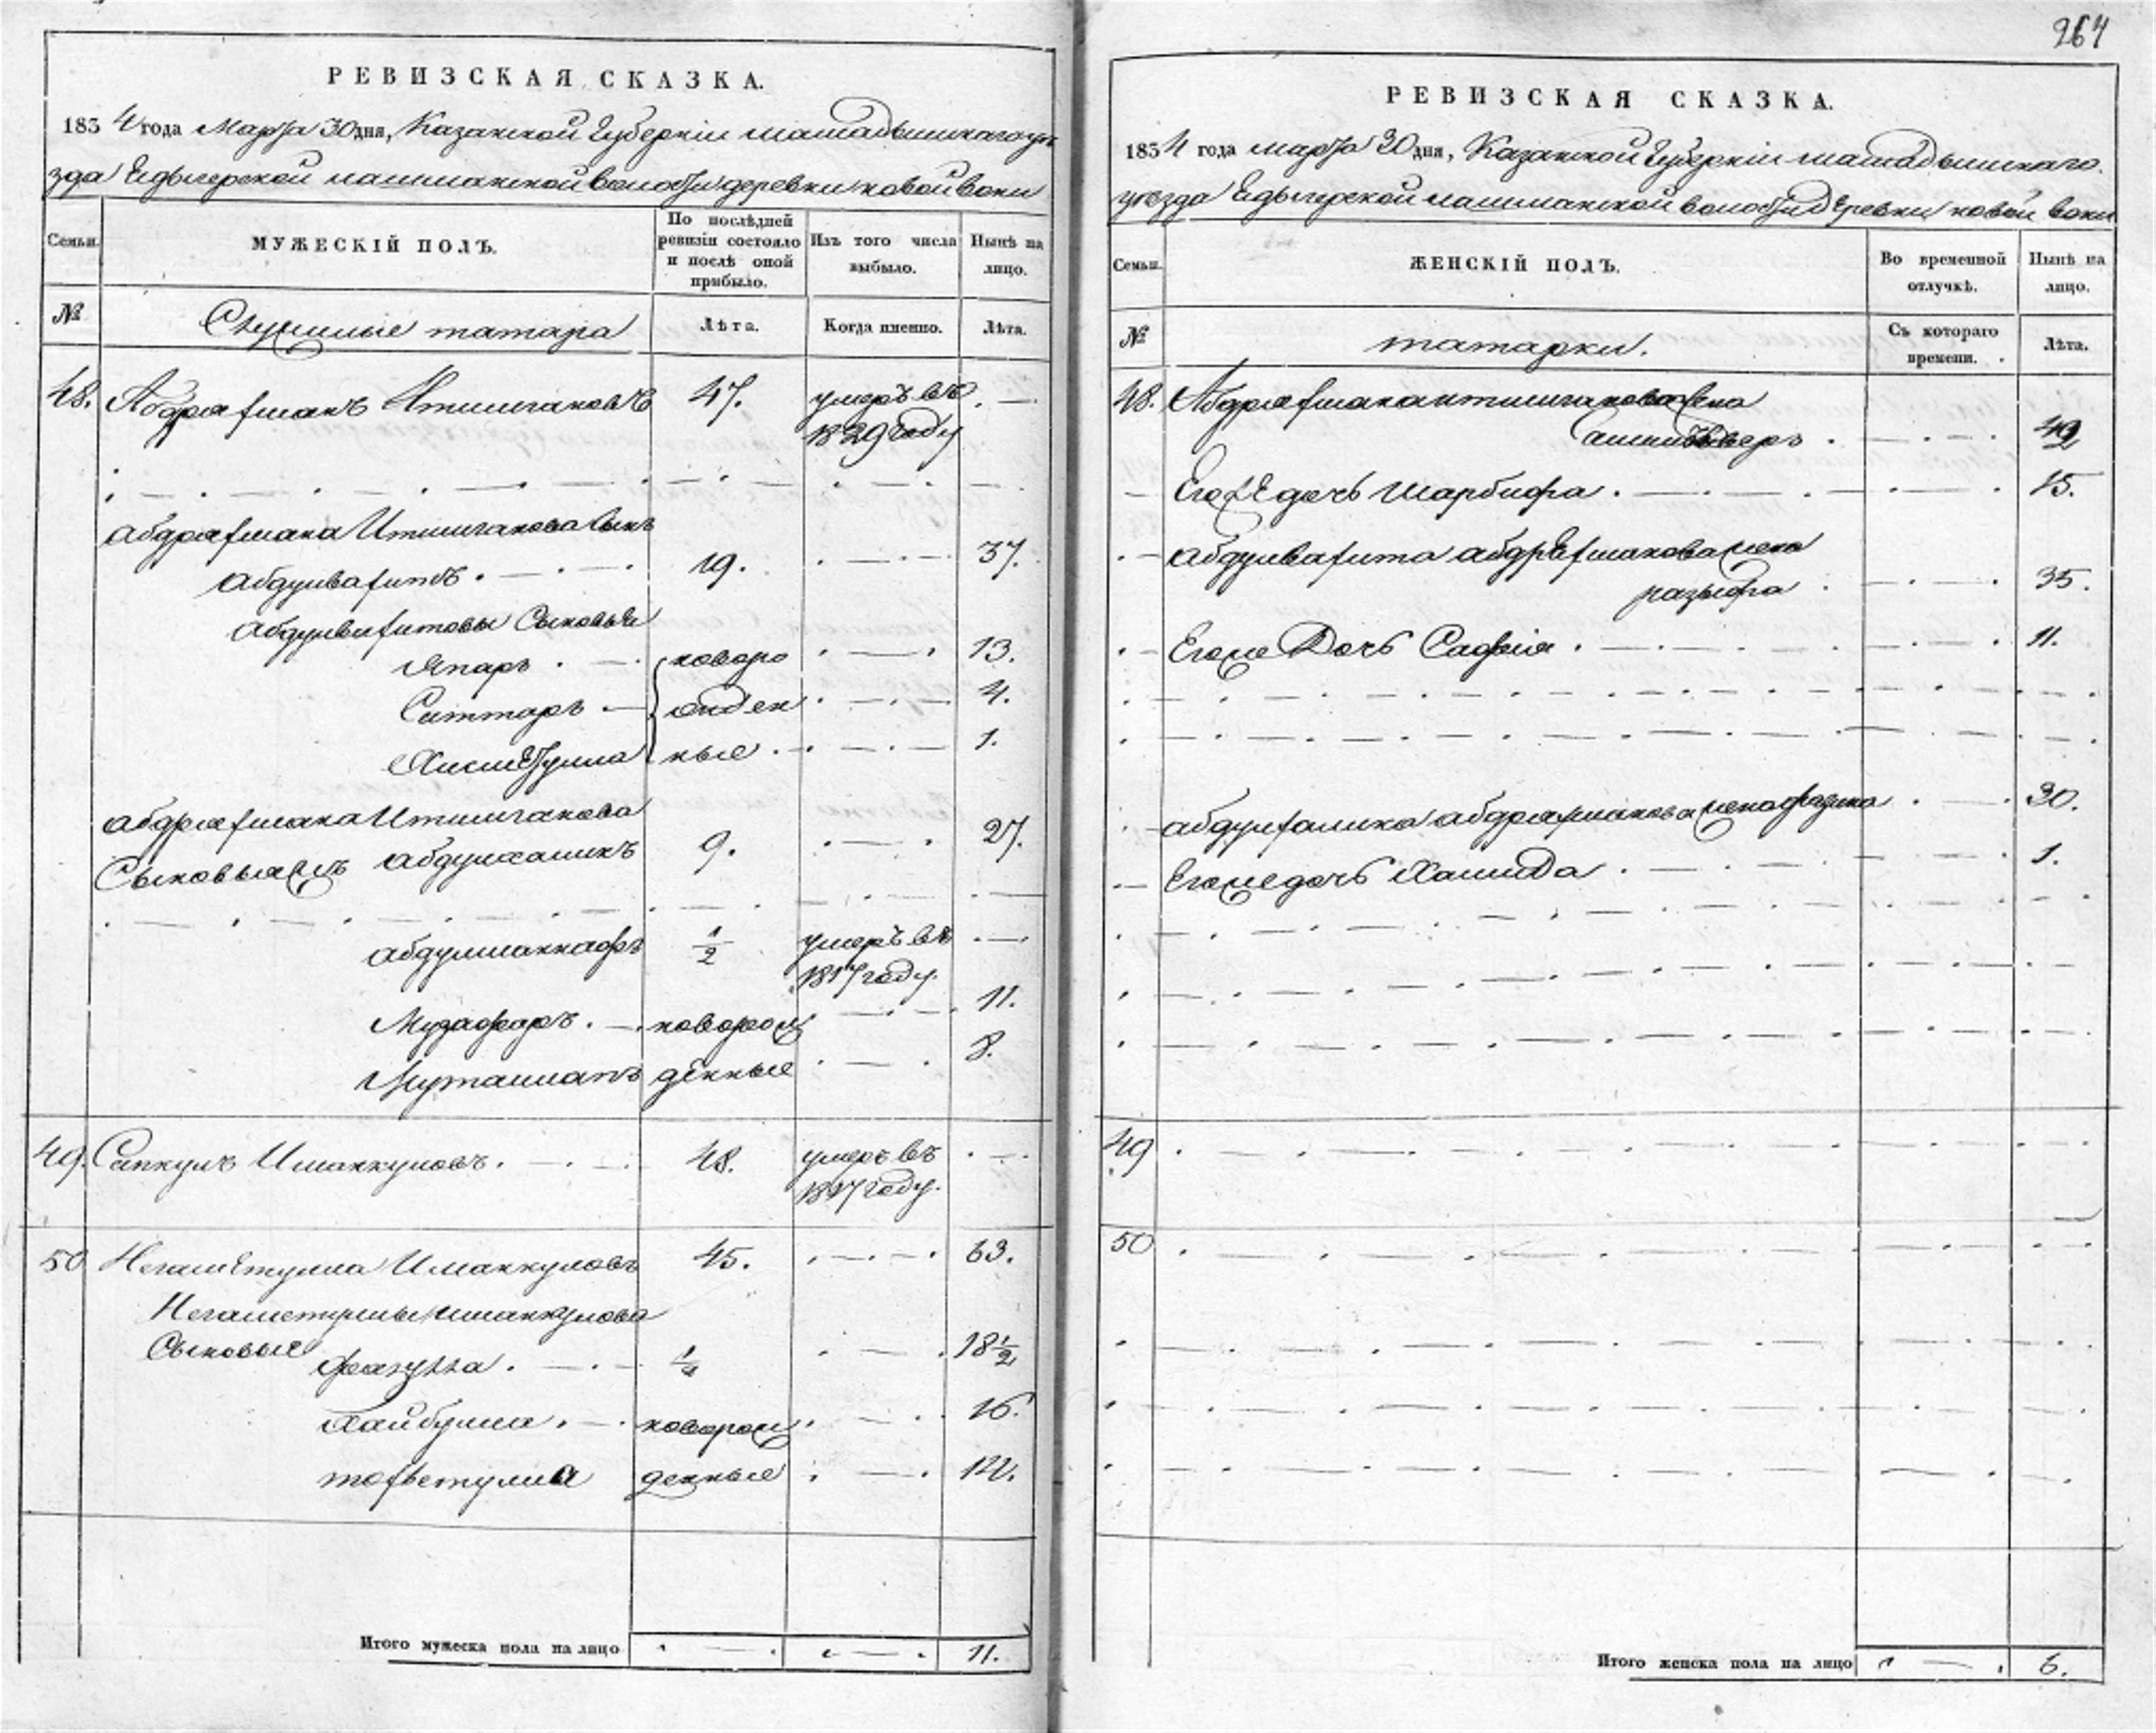 264
РЕВИЗСКАЯ СКАЗКА.
1834 года Марта 30 дня, Казанской Губерніи мамадышскаго уѣ
зда Едыгерской лашманской волости деревни новой воки
Семьи. МУЖЕСКІЙ ПОЛЪ. По послѣдней ревизіи состояло и послѣ оной прибыло. Изъ того числа выбыло. Нынѣ на лицо.
№ Служилые татара Лѣта. Когда именно. Лѣта.
48. Абдрахманъ Итмигановъ 47. умеръ въ
1829 году
абдрахмана Итмиганова сынъ
абдулвахитъ. 19. 37.
абдулвахитовы Сыновья
Япаръ новоро 13.
Ситтаръ жден 4.
Хисметулла ные 1.
абдрахмана Итмиганова
Сыновья жъ абдулхаликъ 9. 27.
абдулманнафъ 1/2 умеръ въ
1817 году.
Музафаръ. новорож 11.
Муталлапъ денные 8.
49. Сапкулъ Иманкуловъ. 48. умеръ въ
1817 году.
50 Негаметулла Иманкуловъ 45. 63.
Негаметуллы иманкулова
Сыновья
фазулла. 1/2 18 1/2
Хайбулла. новорож 16.
тохветулла денные 12.
Итого мужеска пола на лицо 11.
РЕВИЗСКАЯ СКАЗКА.
1834 года марта 30 дня, Казанской Губерніи мамадышскаго
уѣзда Едыгерской лашманской волости деревни новой воки
Семьи. ЖЕНСКІЙ ПОЛЪ. Во временной отлучкѣ. Нынѣ на лицо.
№ татарки. Съ котораго времени. Лѣта.
48. Абдрахмана итмиганова жена
49
Его же дочь Шарбифа. 15.
абдулвахита абдрехманова жена
разыфа 35.
Егоже Дочь Сафія. 11.
абдулхалика абдрахманова жена фазина 30.
Егоже дочь Хамида. 1.
49
50
Итого женска пола на лицо 6.